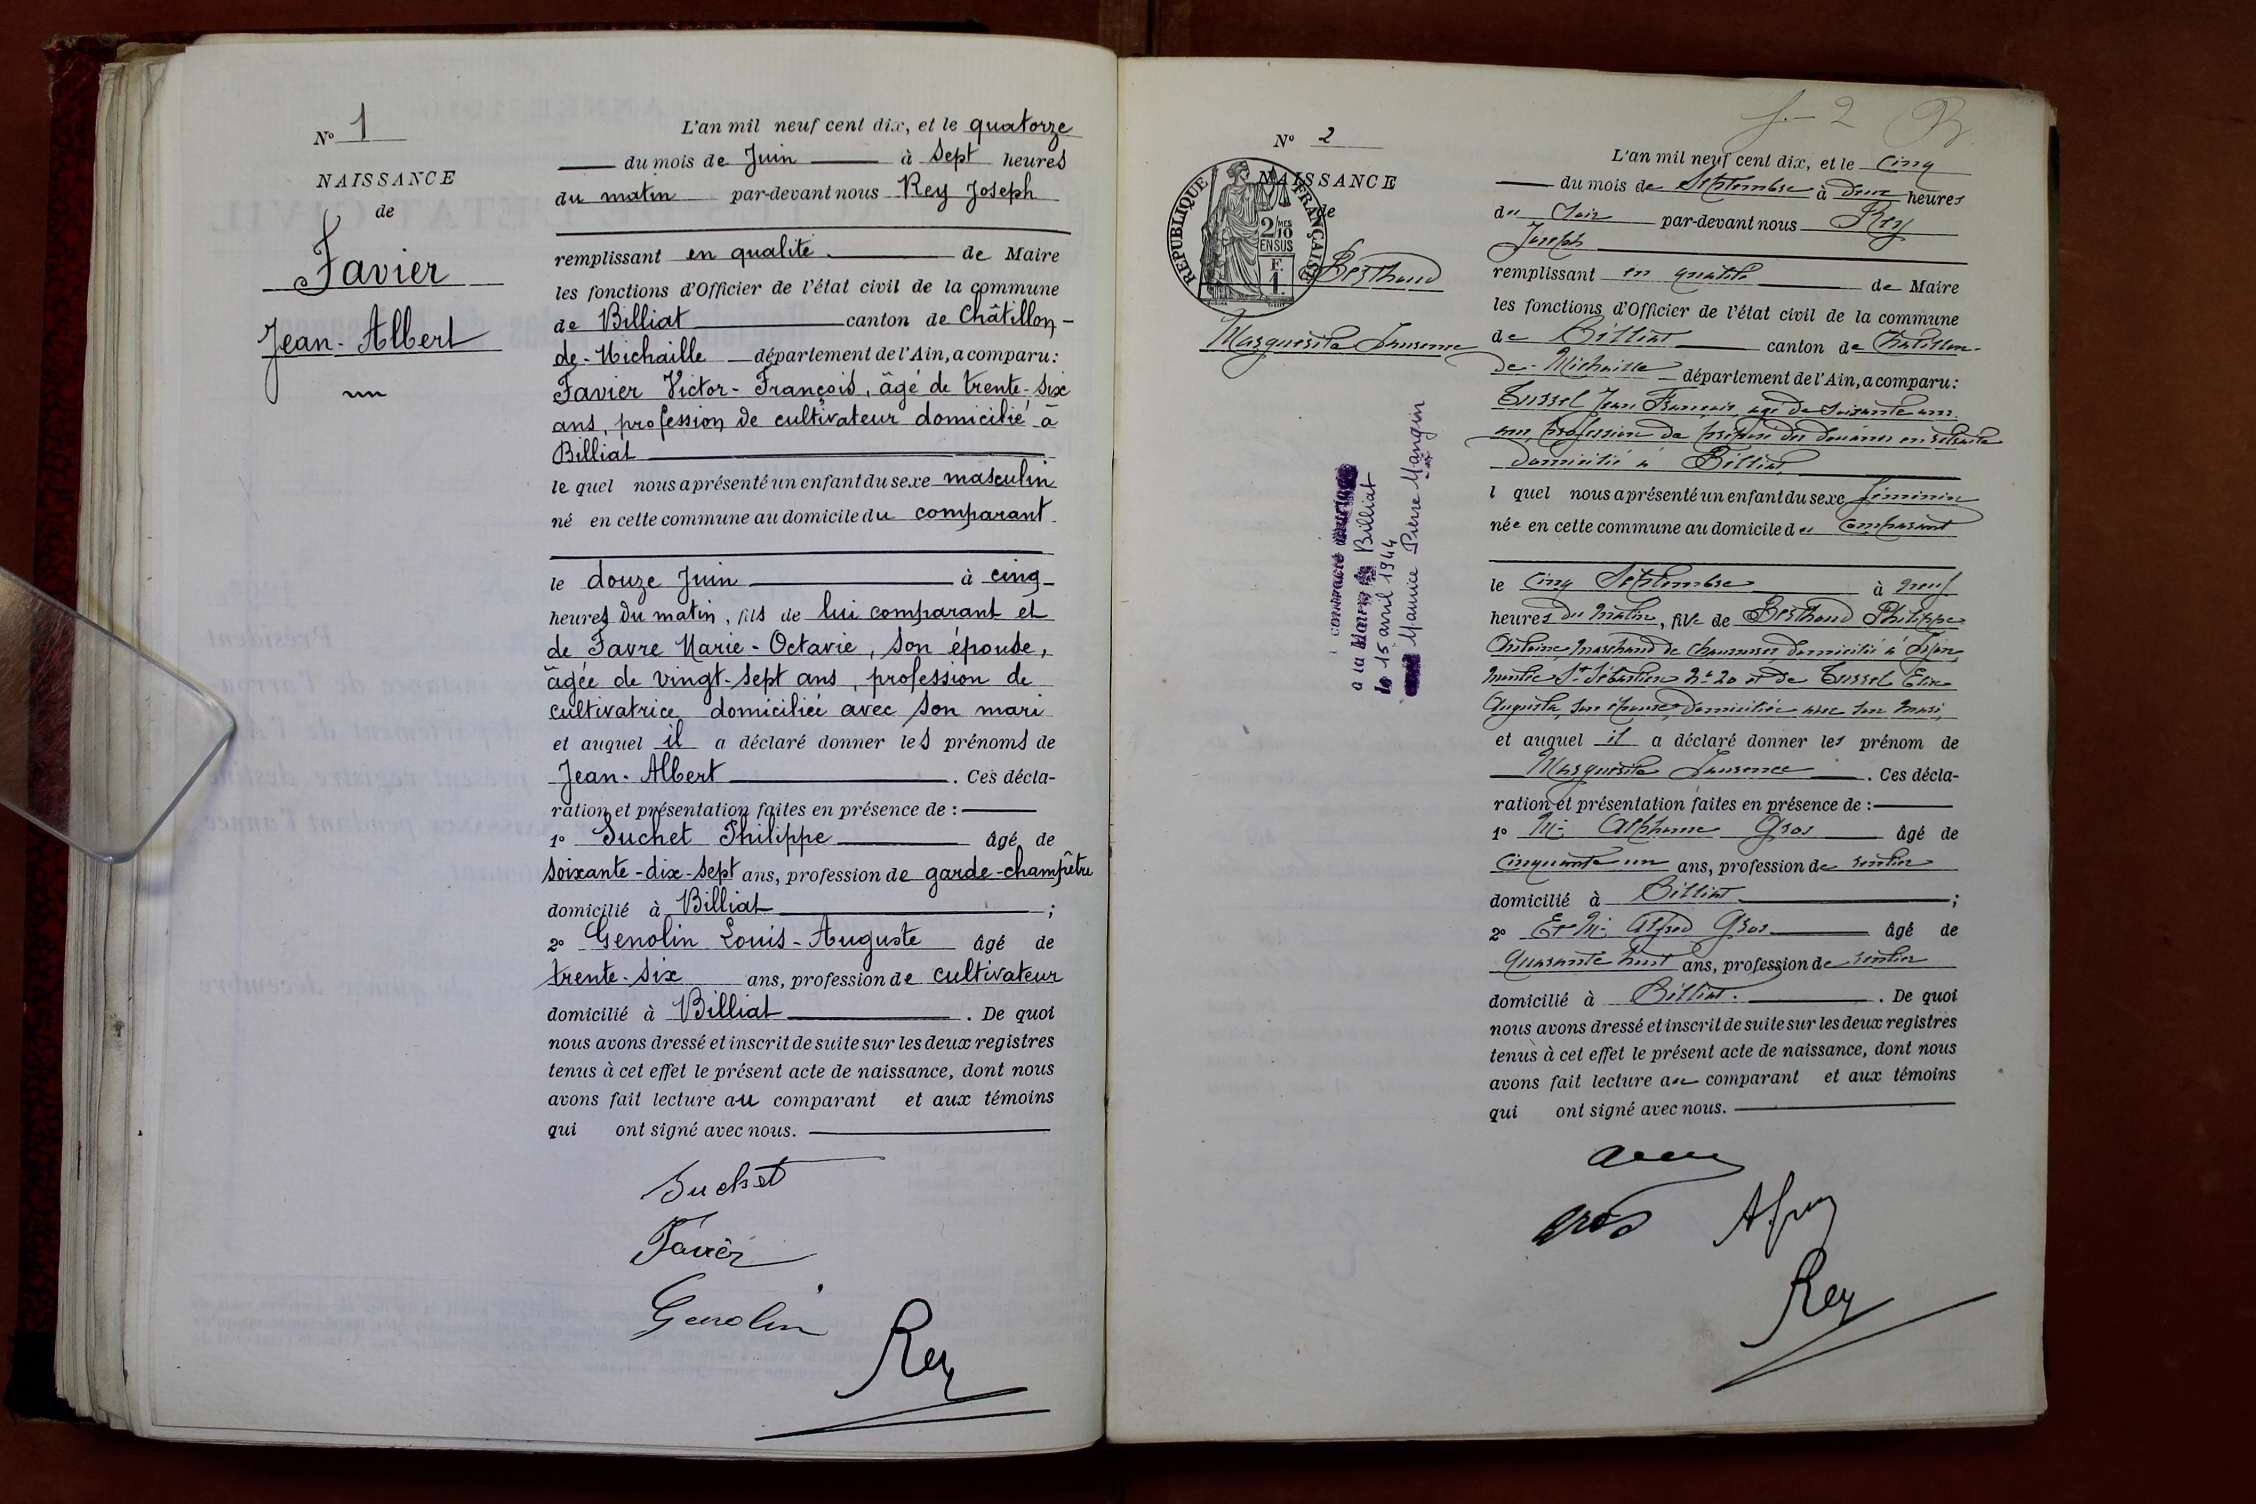 N° 1
NAISSANCE
de
Favier
Jean-Albert
L'an mil neuf cent dix, et le quatorze
du mois de Juin à sept heures
du matin par-devant nous Rey Joseph
remplissant en qualité de Maire
les fonctions d'Officier de l'état civil de la commune
de Billiat canton de Châtillon-
de-Michaille département de l'Ain, a comparu:
Favier Victor-François, âgé de trente-six
ans, profession de cultivateur domicilié à
Billiat
le quel nous a présenté un enfant du sexe masculin
né en cette commune au domicile du comparant
le douze Juin à cinq
heures du matin, fils de lui comparant et
de Favre Marie-Octavie, son épouse,
âgée de vingt-sept ans, profession de
cultivatrice domiciliée avec son mari
et auquel il a déclaré donner les prénoms de
Jean-Albert. Ces décla-
ration et présentation faites en présence de :
1° Suchet Philippe âgé de
soixante-dix-sept ans, profession de garde-champêtre
domicilié à Billiat ;
2° Genolin Louis-Auguste âgé de
trente-six ans, profession de cultivateur
domicilié à Billiat. De quoi
nous avons dressé et inscrit de suite sur les deux registres
tenus à cet effet le présent acte de naissance, dont nous
avons fait lecture au comparant et aux témoins
qui ont signé avec nous.
Suchet
Favier
Genolin
Rey
f. 2
N° 2
NAISSANCE
de
RÉPUBLIQUE FRANÇAISE
2/10 MES
EN SUS
F.
1.
Berthaud
Marguerite Laurence
a la Billiat
le 15 avril 1944
Maurice Pierre Mangin
L'an mil neuf cent dix, et le Cinq
du mois de Septembre à deux heures
du Soir par-devant nous Rey
Joseph
remplissant en qualité de Maire
les fonctions d'Officier de l'état civil de la commune
de Billiat canton de Chatillon-
de-Michaille département de l'Ain, a comparu:
Tussel Jean François, agé de Soixante un
ans, profession de préposé des douanes en retraite
domicilié à Billiat
l quel nous a présenté un enfant du sexe féminin
née en cette commune au domicile du Comparant
le Cinq Septembre à neuf
heures du matin, fille de Berthaud Philippe
Antoine, marchand de chaussures, domicilié à Lyon,
montée St Sébastien N° 20 et de Tussel Elise
Augusta, son épouse, domiciliée avec son mari,
et auquel il a déclaré donner les prénom de
Marguerite Laurence. Ces décla-
ration et présentation faites en présence de :
1° Mr Alphonse Gros âgé de
Cinquante un ans, profession de rentier
domicilié à Billiat ;
2° Et Mr Alfred Gros âgé de
Quarante huit ans, profession de rentier
domicilié à Billiat. De quoi
nous avons dressé et inscrit de suite sur les deux registres
tenus à cet effet le présent acte de naissance, dont nous
avons fait lecture au comparant et aux témoins
qui ont signé avec nous.
Gros
Rey